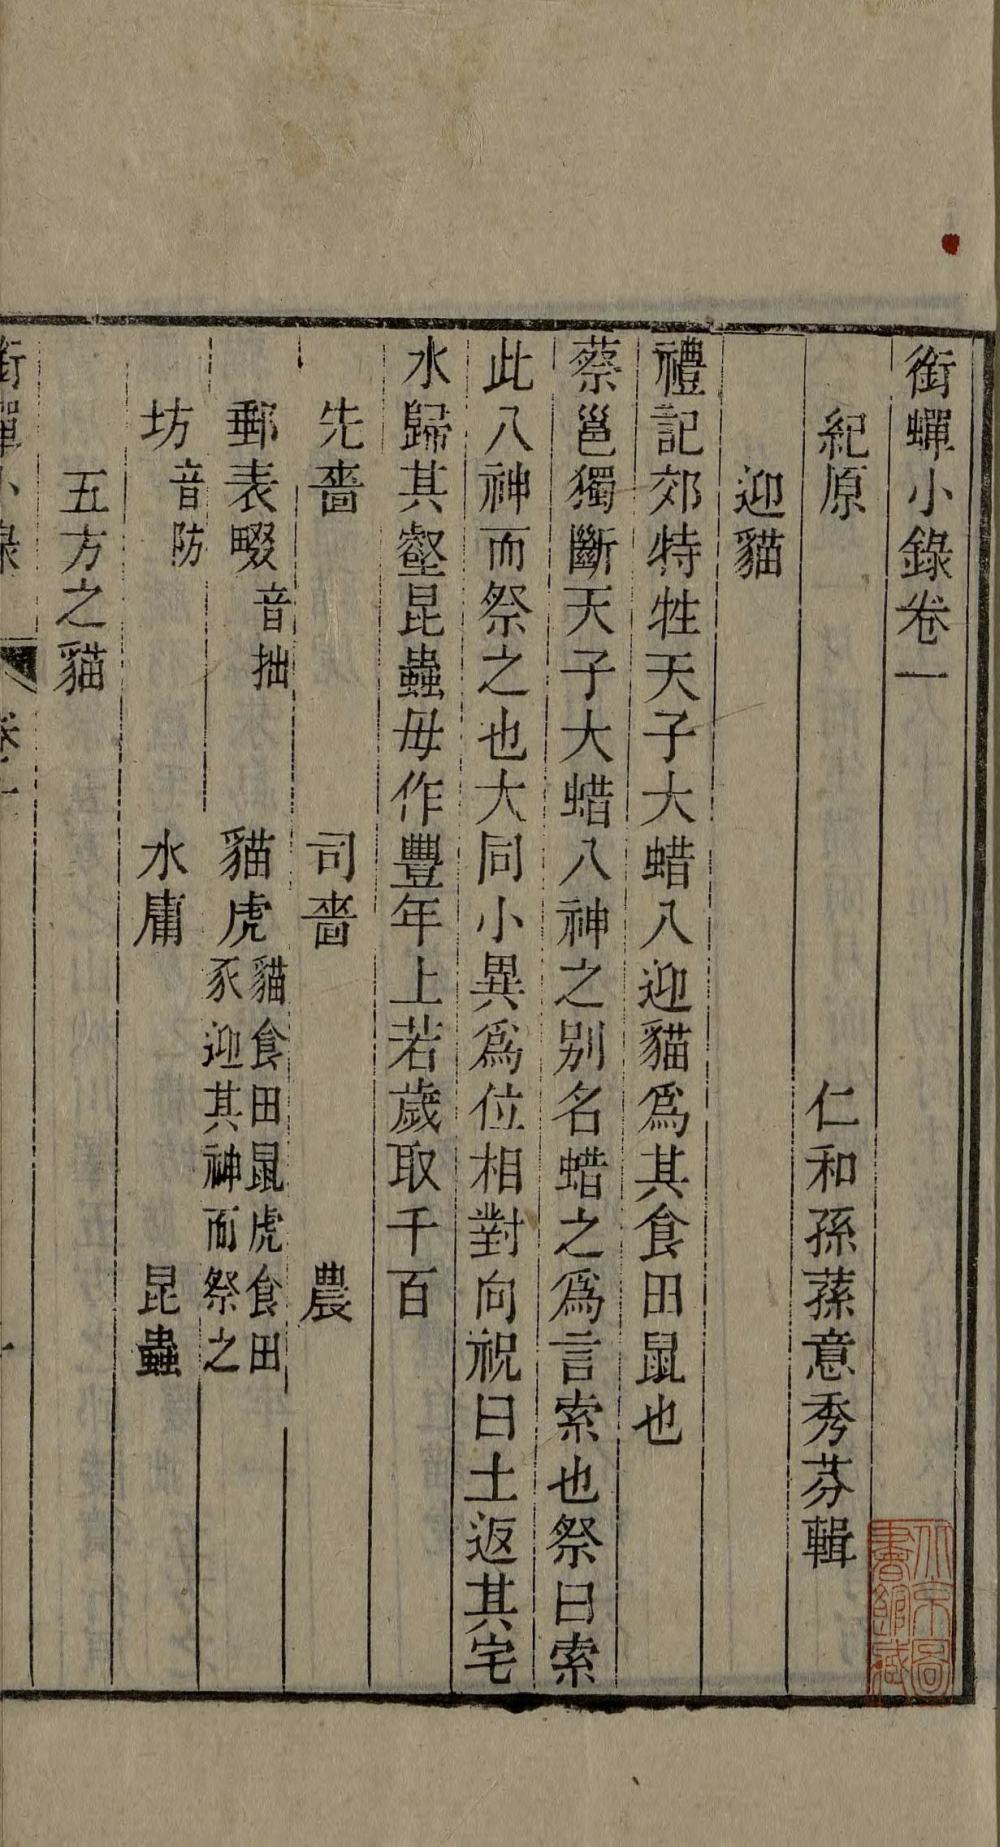 銜蟬小錄卷一
紀原　仁和孫蓀意秀芬輯
迎貓
禮記郊特牲天子大蜡八迎貓爲其食田鼠也
蔡邕獨斷天子大蜡八神之別名蜡之爲言索也祭曰索
此八神而祭之也大同小異爲位相對向祝曰土返其宅
水歸其壑昆蟲毋作豐年上若歲取千百
先嗇　司嗇　農
郵表畷音拙　貓虎貓食田鼠虎食田豕迎其神而祭之
坊音防　水庸　昆蟲
五方之貓
銜蟬小錄　卷一　一
北京圖書館藏